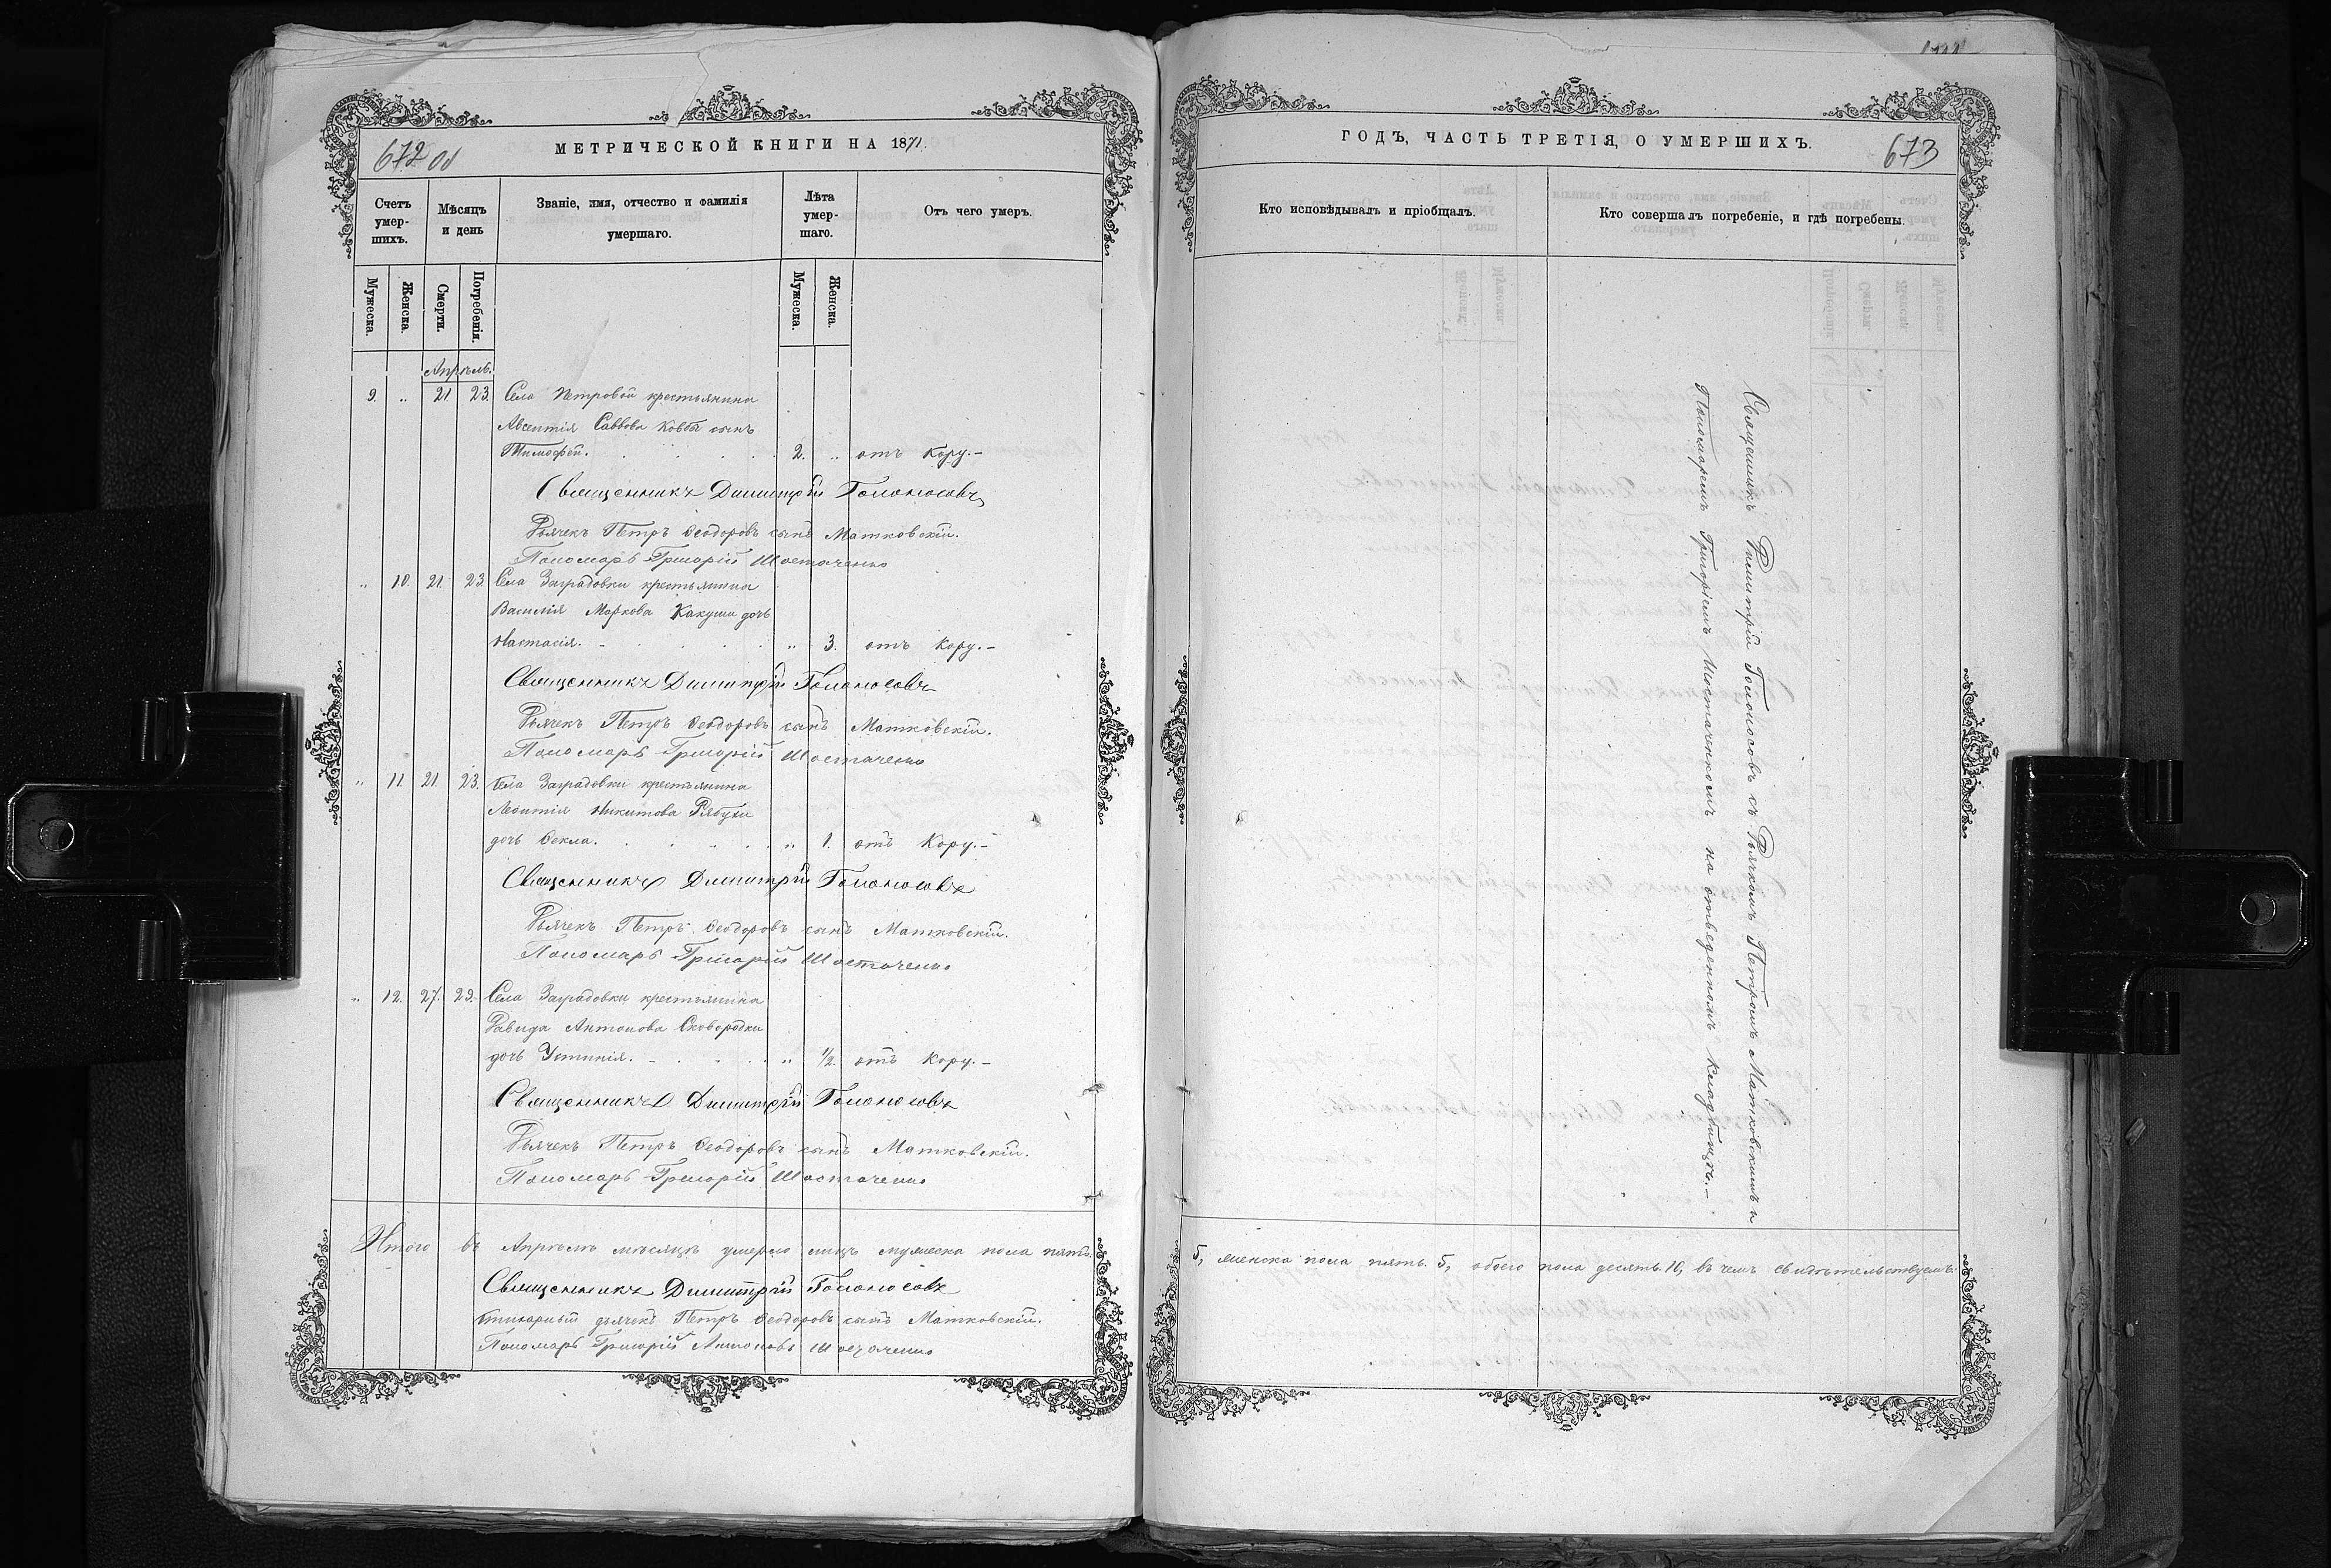 672 об
МЕТРИЧЕСКОЙ КНИГИ НА 1871.
Счетъ умер-шихъ.
Мѣсяцъ и день
Званіе, имя, отчество и фамилія умершаго.
Лѣта умер-шаго.
Отъ чего умеръ.
Мужеска.
Женска.
Смерти.
Погребенія.
Мужеска.
Женска.
Апрѣль.
9. „ 21 23. Села Петровой крестьянина
Авсентія Саввова Ковба сынъ
Тимофей. 2. „ отъ Кору.-
Священникъ Димитрій Голоносовъ
Дьячекъ Петръ Ѳеодоровъ сынъ Матковскій.
Пономарь Григорій Шостаченко
„ 10. 21. 23. Села Заградовки крестьянина
Василія Маркова Какуши дочь
Настасія. - „ 3. отъ Кору.-
Священникъ Димитрій Голоносовъ
Дьячекъ Петръ Ѳеодоровъ сынъ Матковскій.
Пономарь Григорій Шостаченко
„ 11. 21. 23. Села Заградовки крестьянина
Леонтія Никитова Рябухи
дочь Ѳекла. „ 1. отъ Кору.-
Священникъ Димитрій Голоносовъ
Дьячекъ Петръ Ѳеодоровъ сынъ Матковскій.
Пономарь Григорій Шостаченко
„ 12. 27. 29. Села Заградовки крестьянина
Давида Антонова Сковородки
дочь Устинія. - „ 1/2. отъ Кору.-
Священникъ Димитрій Голоносовъ
Дьячекъ Петръ Ѳеодоровъ сынъ Матковскій.
Пономарь Григорій Шостаченко
Итого въ Апрѣлѣ мѣсяцѣ умерло лицъ мужеска пола пять.
Священникъ Димитрій Голоносовъ
дьячекъ Петръ Ѳеодоровъ сынъ Матковскій.
Пономарь Григорій Антоновъ Шостаченко
ГОДЪ, ЧАСТЬ ТРЕТІЯ, О УМЕРШИХЪ.
673
Кто исповѣдывалъ и пріобщалъ.
Кто совершалъ погребеніе, и гдѣ погребены.
Священникъ Димитрій Голоносовъ съ Дьячкомъ Петромъ Матковскимъ и
Пономаремъ Григоріемъ Шостаченкомъ на отведенномъ кладбищѣ.-
5, женска пола пять. 5, обоего пола десять. 10, въ чемъ свидѣтельствуемъ: